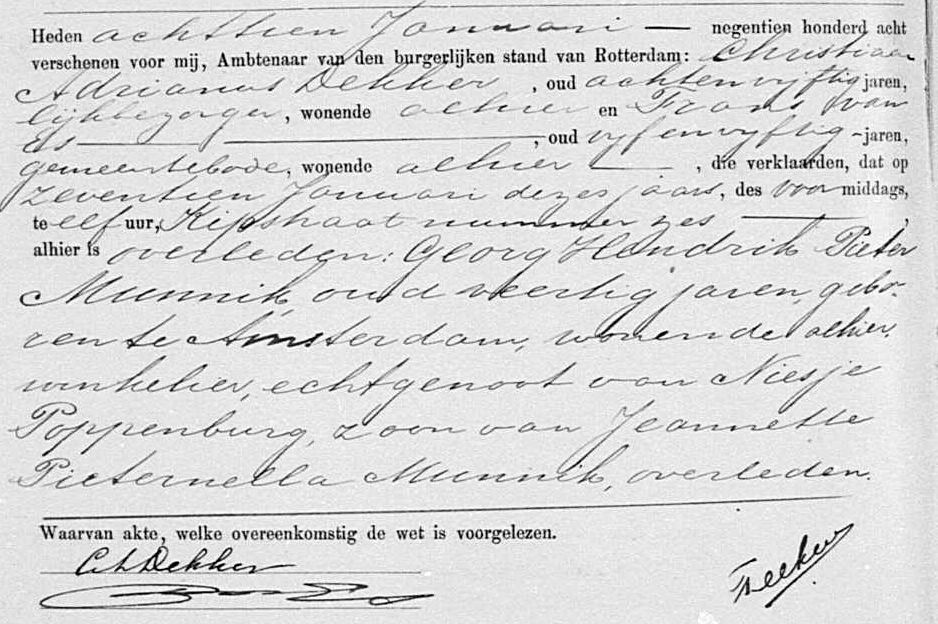 Heden achttien Januari — negentien honderd acht
verschenen voor mij, Ambtenaar van den burgerlijken stand van Rotterdam: Christiaan
Adrianus Dekker, oud achtenvijftig jaren,
lijkbezorger, wonende alhier en Frans van
Es —, oud vijfenvijftig - jaren,
gemeentebode, wonende alhier —, die verklaarden, dat op
zeventien Januari dezes jaars, des voormiddags,
te elf uur, Kipstraat nummer zes —,
alhier is overleden: Georg Hendrik Pieter
Munnik, oud veertig jaren, gebo-
ren te Amsterdam, wonende alhier,
winkelier, echtgenoot van Niesje
Poppenburg, zoon van Jeannette
Pieternella Munnik, overleden.
Waarvan akte, welke overeenkomstig de wet is voorgelezen.
C A Dekker